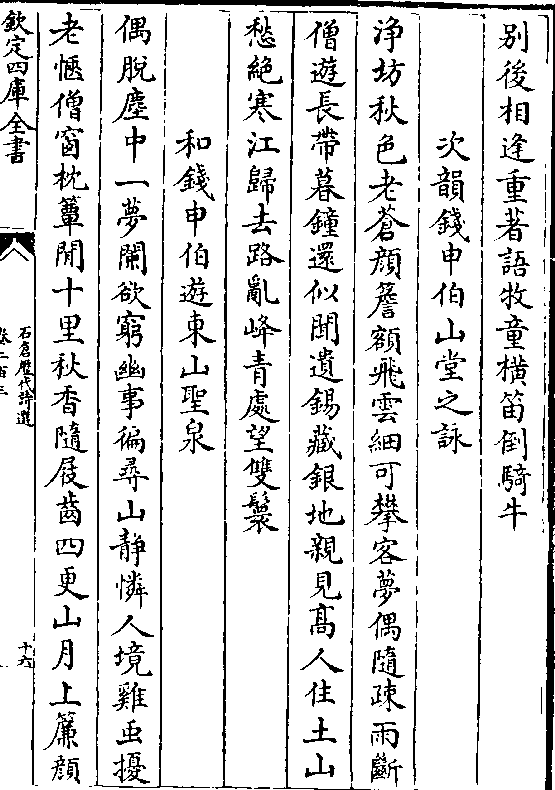 别後相逢重著語牧童横笛倒騎牛
次韻錢申伯山堂之詠
浄坊秋色老蒼顔簷額飛雲細可攀客夢偶隨疎雨斷
僧遊長帶暮鐘還似聞遺錫藏銀地親見髙人住土山
愁絶寒江歸去路亂峰青處望雙鬟
和錢申伯遊東山聖泉
偶脱塵中一夢闌欲窮幽事徧尋山静憐人境雞䖝擾
老愜僧窗枕簟閒十里秋香隨屐齒四更山月上簾顔
欽定四庫全書
石倉歴代詩選
卷二百三
十六